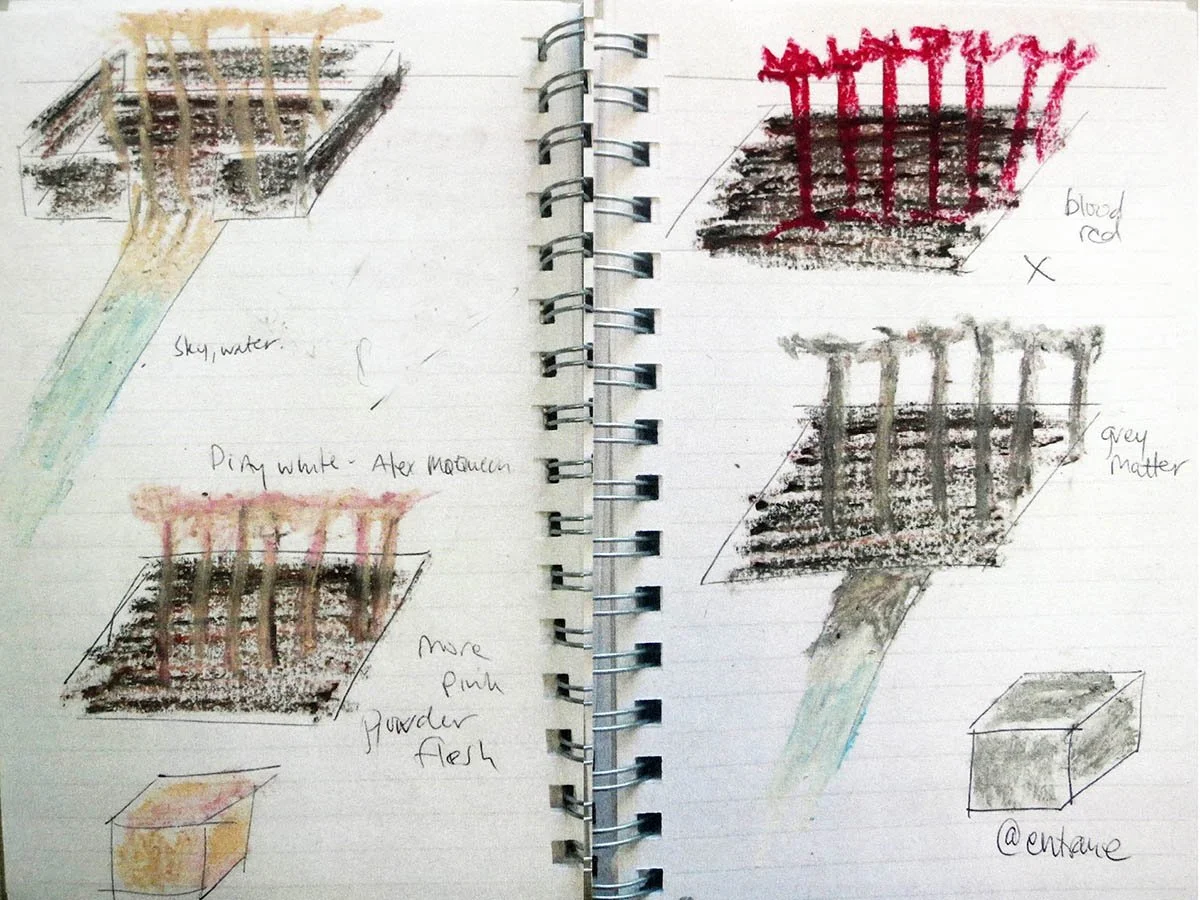 sky, water.
Dirty white - Alex McQueen
more
pink
powder
flesh
blood
red
X
grey
matter
@entrance